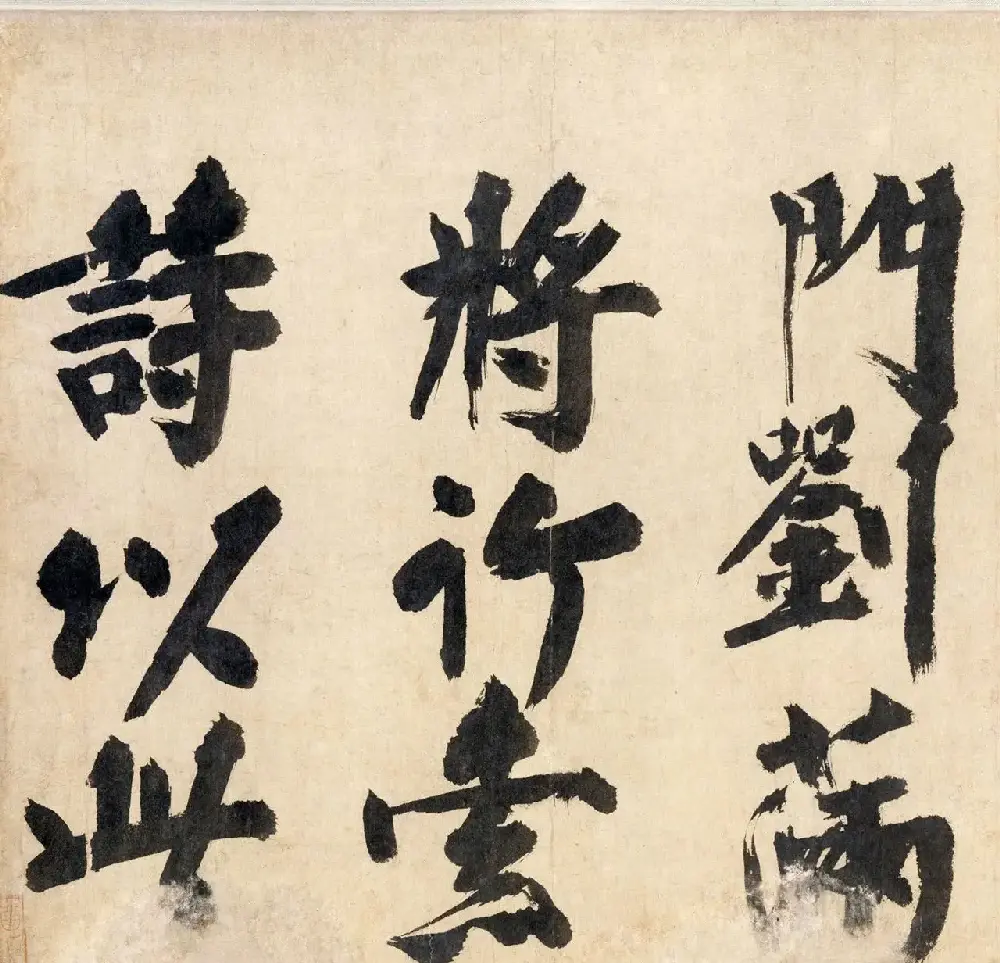 門劉滿
將行索
詩以此